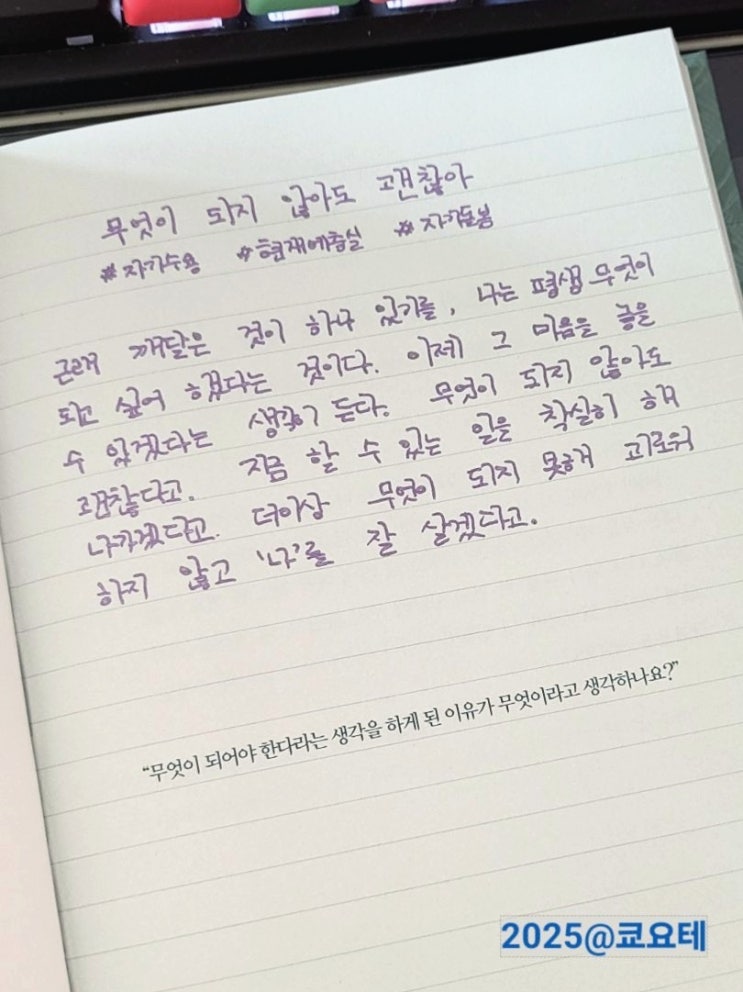 무엇이 되지 않아도 괜찮아
#자기수용 #현재에충실 #자기돌봄
근래 깨달은 것이 하나 있기를, 나는 평생 무엇이
되고 싶어 했다는 것이다. 이제 그 마음을 놓을
수 있겠다는 생각이 든다. 무엇이 되지 않아도
괜찮다고. 지금 할 수 있는 일을 착실히 해
나가겠다고. 더이상 무엇이 되지 못해 괴로워
하지 않고 '나'를 잘 살겠다고.
“무엇이 되어야 한다라는 생각을 하게 된 이유가 무엇이라고 생각하나요?”
2025@쿄요테